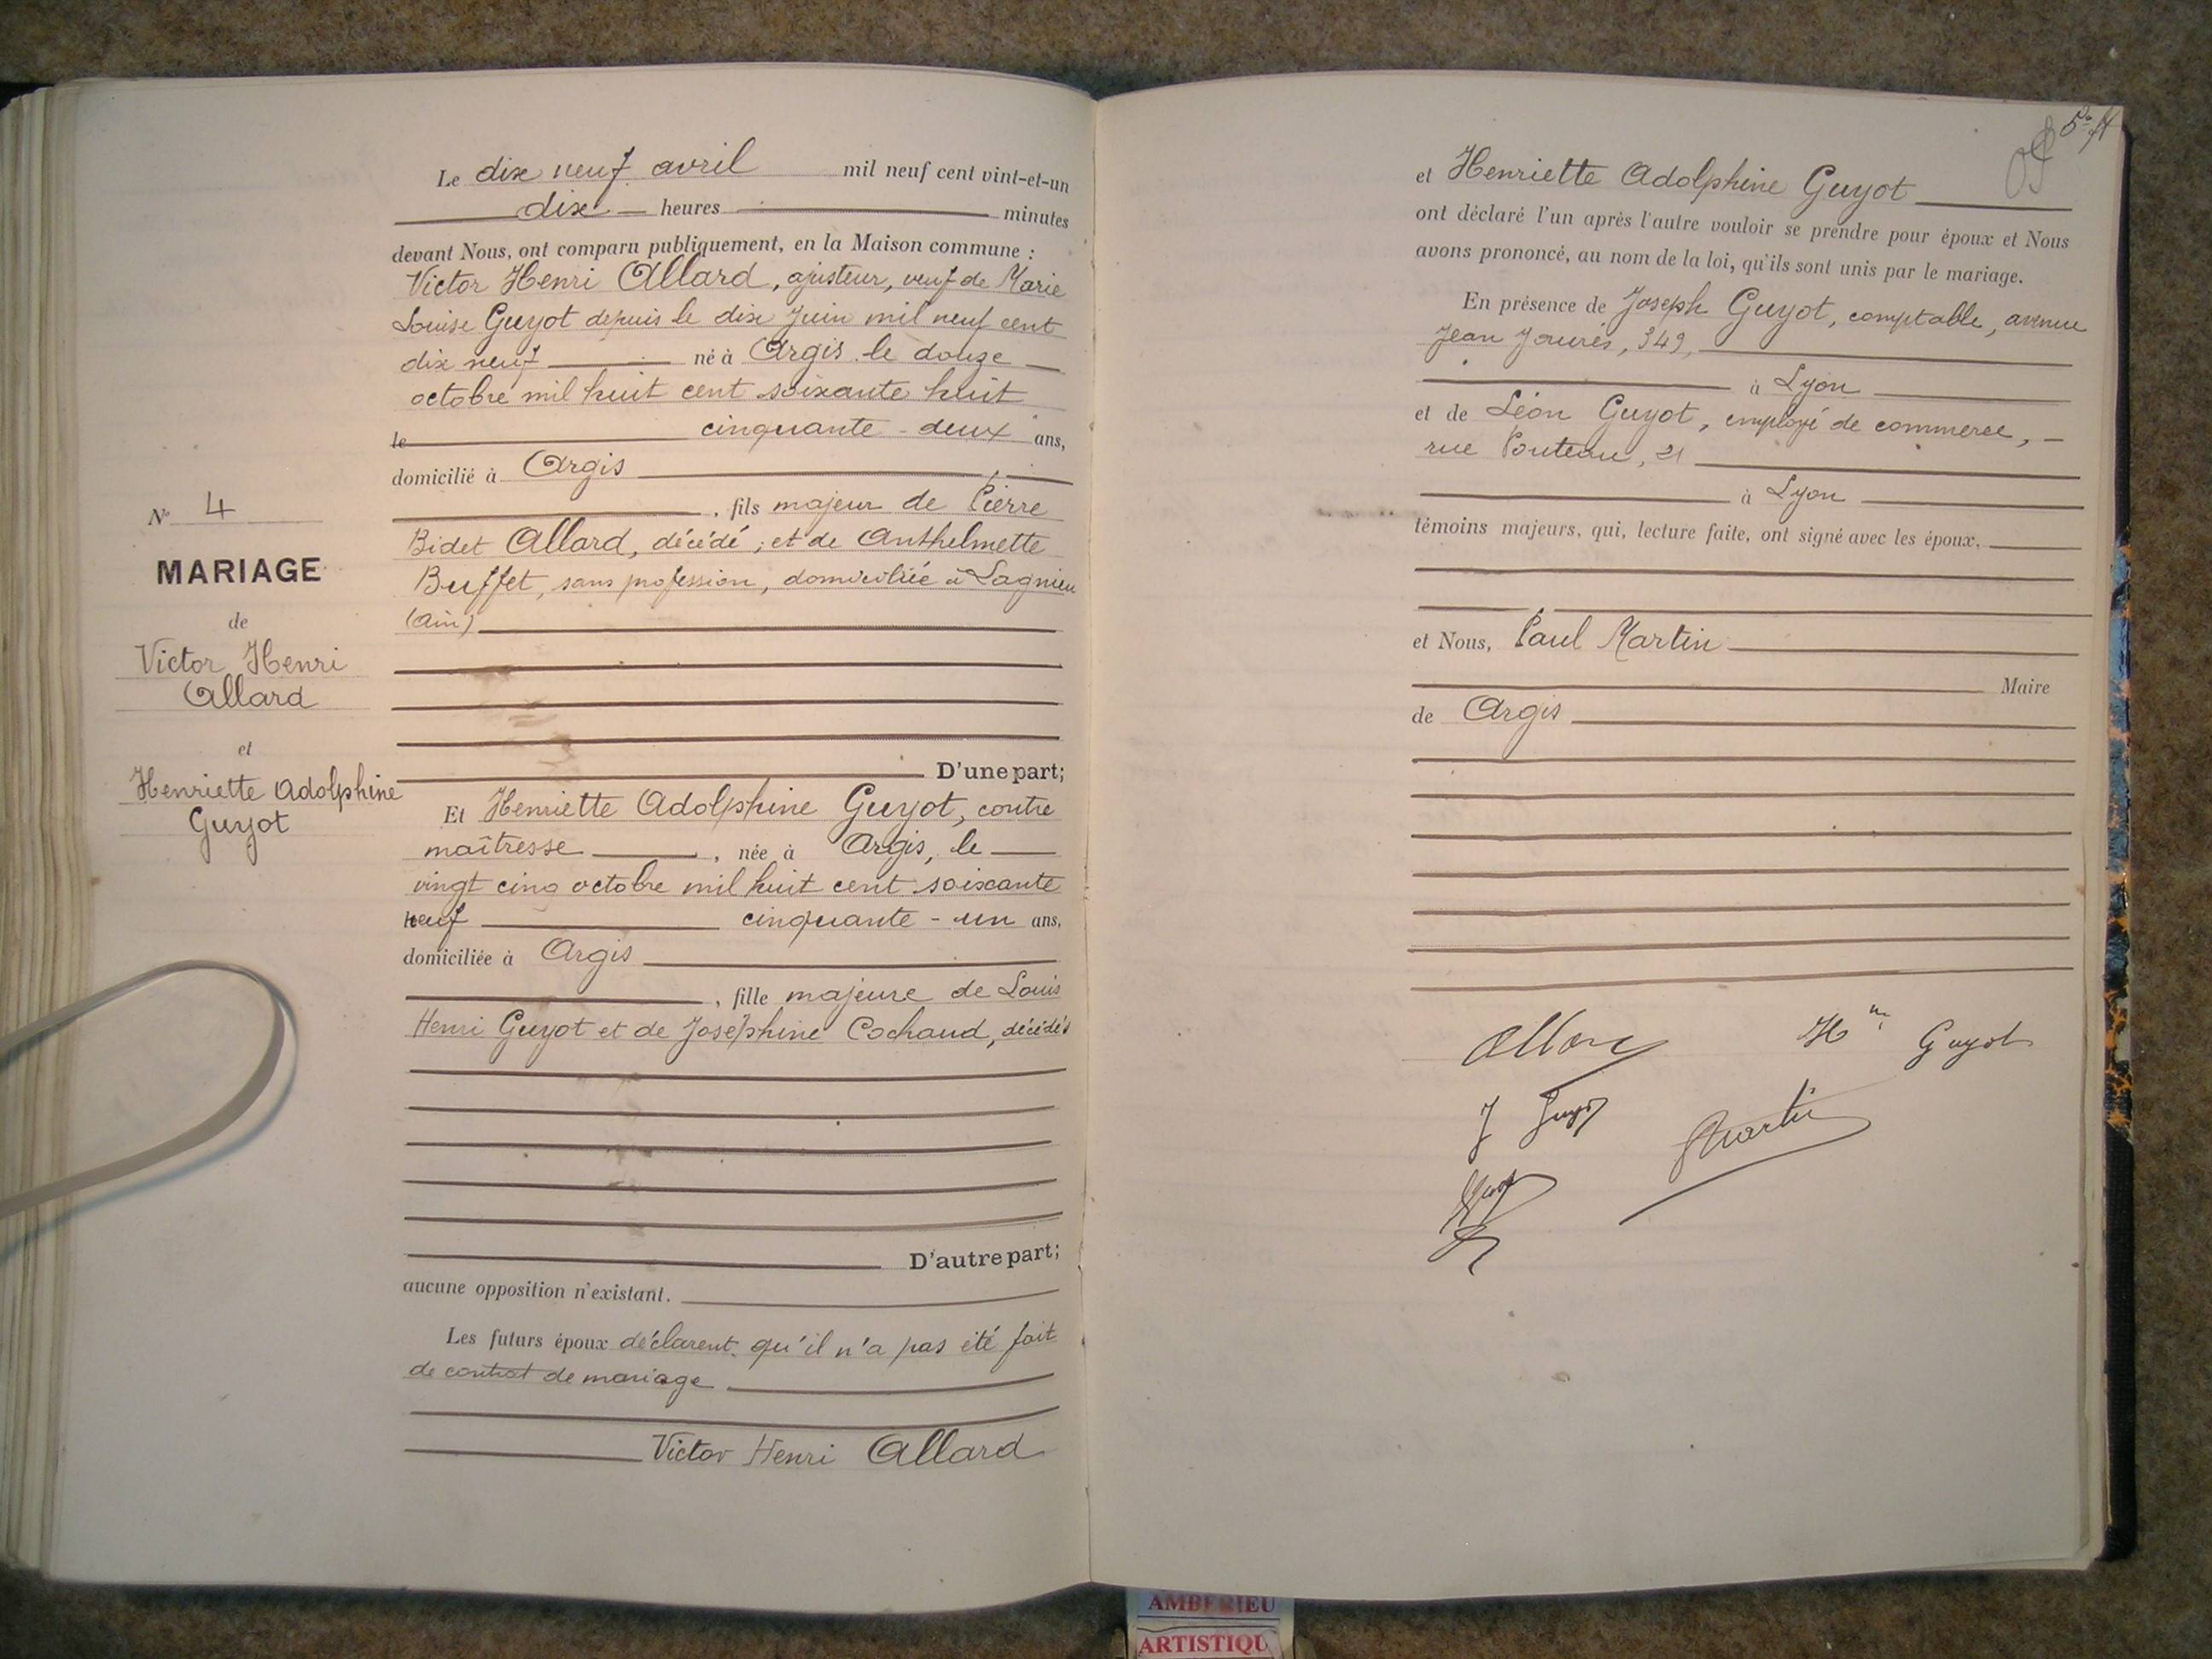 N° 4
MARIAGE
de
Victor Henri
Allard
et
Henriette Adolphine
Guyot
Le dix neuf avril mil neuf cent vint-et-un
dix heures minutes
devant Nous, ont comparu publiquement, en la Maison commune :
Victor Henri Allard, ajusteur, veuf de Marie
Louise Guyot depuis le dix Juin mil neuf cent
dix neuf né à Argis le douze
octobre mil huit cent soixante huit
le cinquante - deux ans,
domicilié à Argis
, fils majeur de Pierre
Bidet Allard, décédé, et de Anthelmette
Buffet, sans profession, domiciliée à Lagnieu
(Ain)
D'une part;
Et Henriette Adolphine Guyot, contre
maîtresse , née à Argis, le
vingt cinq octobre mil huit cent soixante
neuf cinquante - un ans,
domiciliée à Argis
, fille majeure de Louis
Henri Guyot et de Joséphine Cochaud, décédés
D'autre part;
aucune opposition n'existant.
Les futurs époux déclarent qu'il n'a pas été fait
de contrat de mariage
Victor Henri Allard
et Henriette Adolphine Guyot
ont déclaré l'un après l'autre vouloir se prendre pour époux et Nous
avons prononcé, au nom de la loi, qu'ils sont unis par le mariage.
En présence de Joseph Guyot, comptable, avenue
Jean Jaurès, 349,
à Lyon
et de Léon Guyot, employé de commerce,
rue Pouteau, 21
à Lyon
témoins majeurs, qui, lecture faite, ont signé avec les époux,
et Nous, Paul Martin
Maire
de Argis
Allard
Guyot
J Guyot
Martin
AMBERIEU
ARTISTIQU